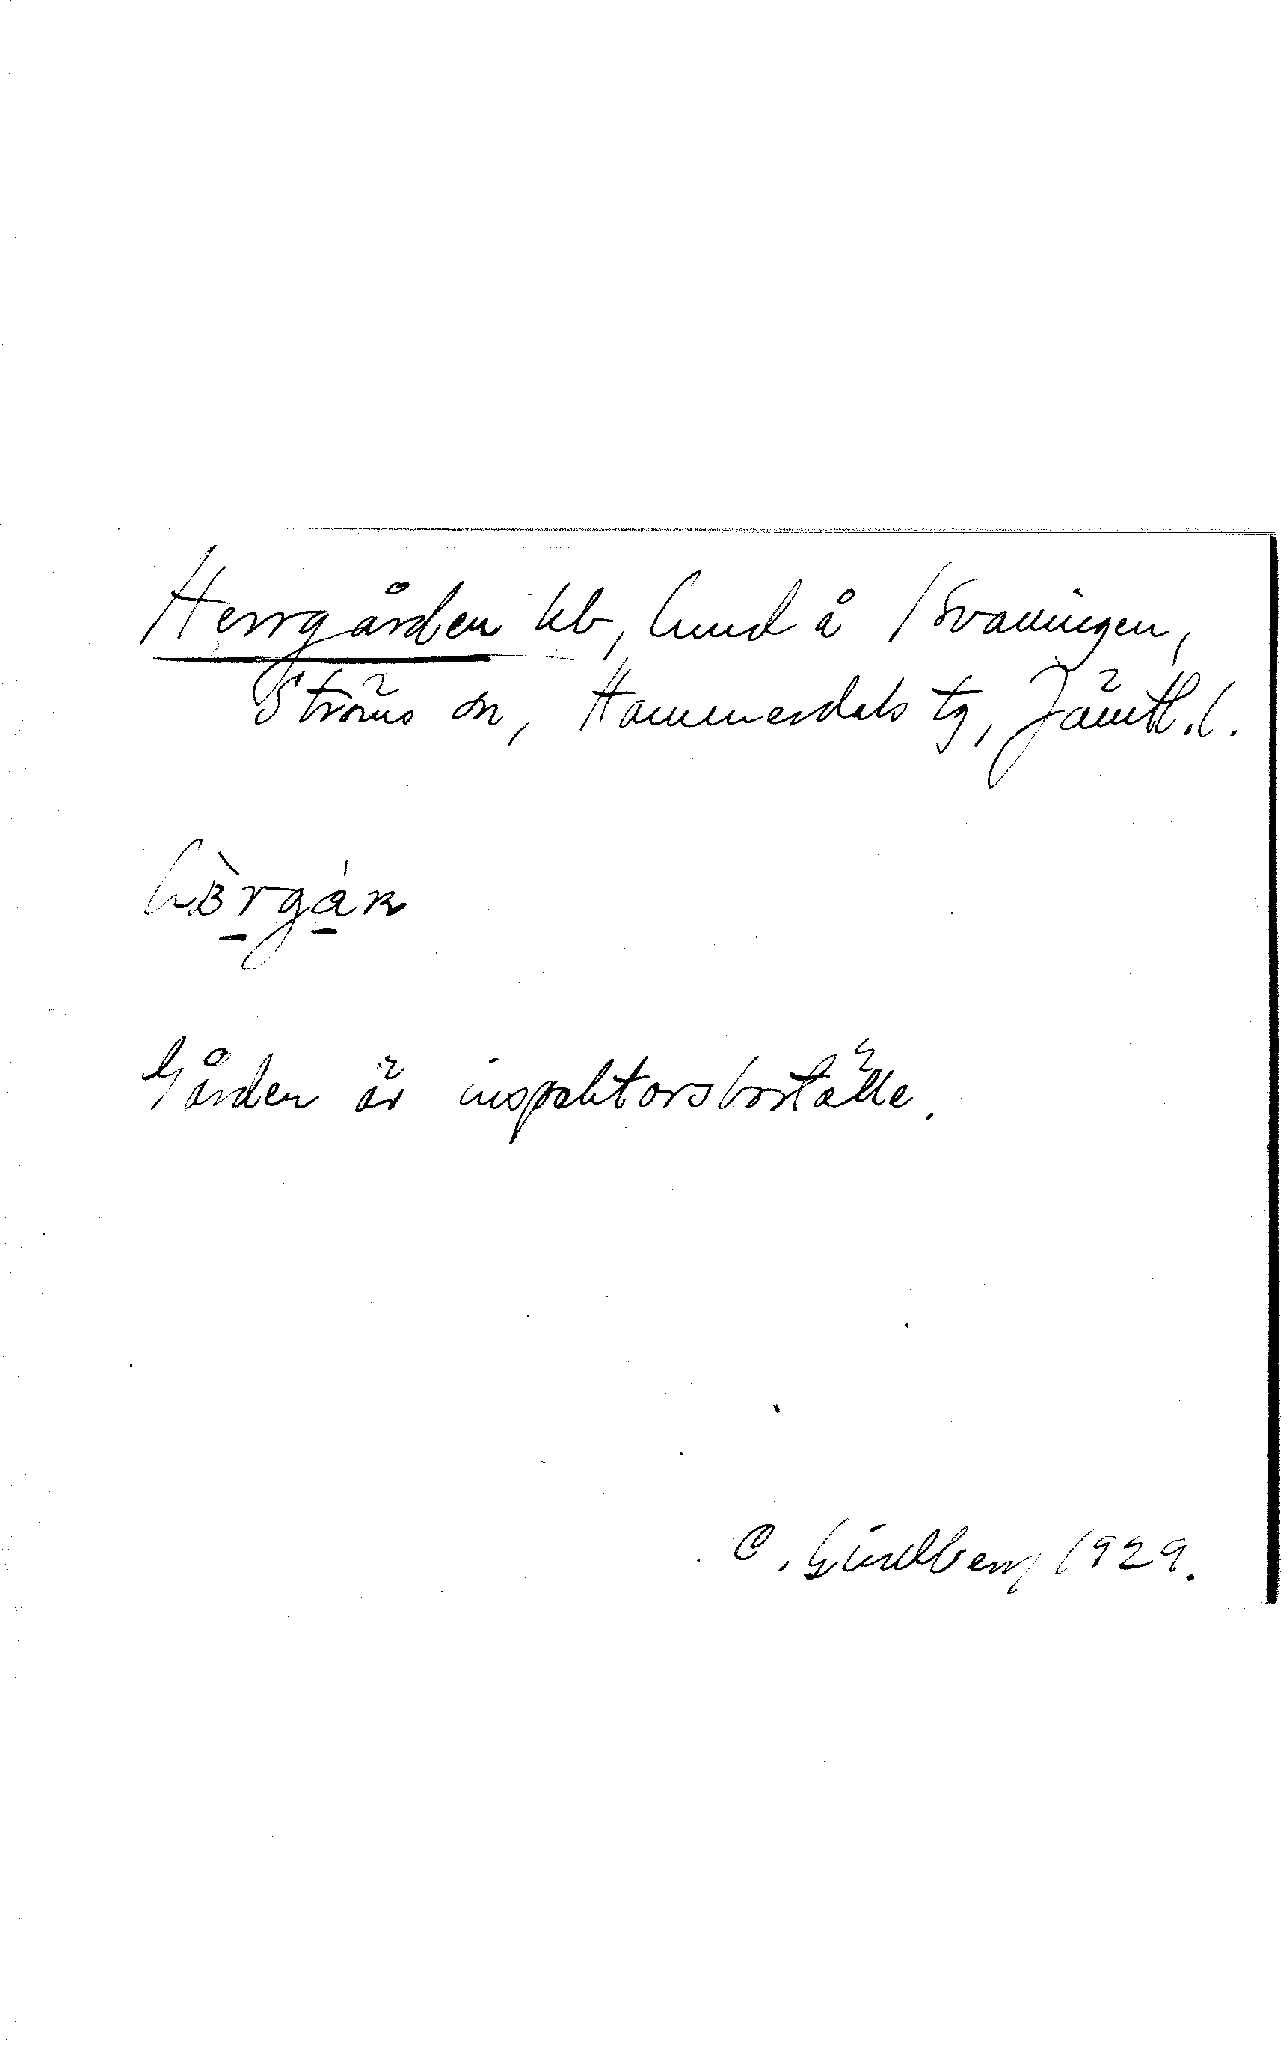 Herrgården hb, hmd å 1 Svaningen,
Ströms sn, Hammerdals tg, Jämtl. l.
hèrgán
Gården är inspektorsboställe.
C. Lindberg 1929.